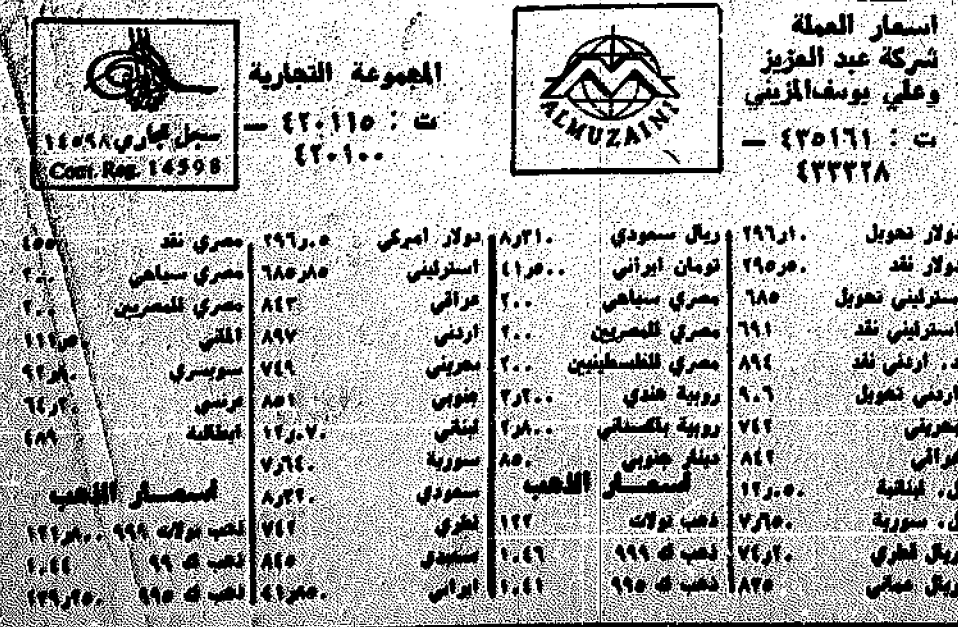 اسعار العملة
شركة عبد العزيز
وعلي يوسف المزيني
ت : ٤٣٥١٦١ —
٤٣٣٣٢٨
ALMUZAINI
دولار تحويل ٢٩٦٫١٠
دولار نقد ٢٩٥٫٥٠
استرليني تحويل ٦٨٥
استرليني نقد ٦٩١
د. اردني نقد ٨٩٤
اردني تحويل ٩٠٦
بحريني ٧٤٢
عراقي ٨٤٢
ل. لبنانية ١٢٫٠٥٠
ل. سورية ٧٫٦٥٠
ريال قطري ٧٤٫٢٠
ريال عماني ٨٣٥
ريال سعودي ٨٫٣١٠
تومان ايراني ٤١٫٥٠٠
مصري سياحي ٢٠٠
مصري للمصريين ٢٠٠
مصري للفلسطينيين ٢٠٠
روبية هندي ٣٫٢٠٠
روبية باكستاني ٢٫٨٠٠
دينار جنوبي ٨٥٠
اسعار الذهب
ذهب تولات ١٢٢
ذهب ك ٩٩٩ ١٠٤٦
ذهب ك ٩٩٥ ١٠٤١
المجموعة التجارية
ت : ٤٢٠١١٥ —
٤٢٠١٠٠
سجل تجاري ١٤٥٩٨
Com. Reg. 14598
دولار اميركي ٢٩٦٫٠٥
استرليني ٦٨٥٫٨٥
عراقي ٨٤٣
اردني ٨٩٧
بحريني ٧٤٩
جنوبي ٨٥١
لبناني ١٢٫٠٧٠
سورية ٧٫٦٤٠
سعودي ٨٫٢٢٠
قطري ٧٤٢
٨٤٥
ايراني ٤١٫٨٥٠
مصري نقد ٤٥٥
مصري سياحي ٢٠٠
مصري للمصريين ٢٠٠
الماني ١١١٫٥٠
سويسري ٩٢٫٨٠
٦٤٫٢٠
ايطالية ٤٨٩
اسعار الذهب
ذهب تولات ٩٩٩ ١٢١٫٨٠٠
ذهب ك ٩٩ ١٠٤٤
ذهب ك ٩٩٥